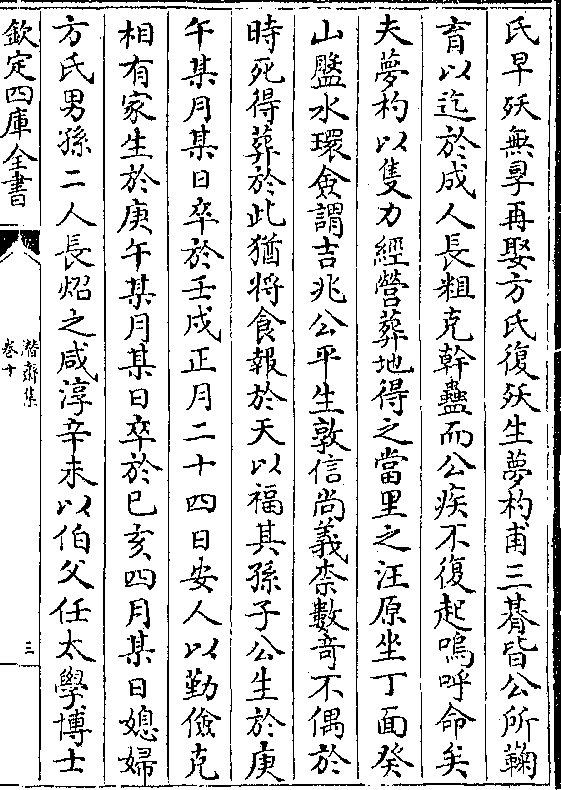 氏早殀無㝅再娶方氏復殀生夢杓甫三朞皆公所鞠
育以迄於成人長粗克幹蠱而公疾不復起嗚呼命矣
夫夢杓以隻力經營葬地得之當里之汪原坐丁面癸
山盤水環僉謂吉兆公平生敦信尚義柰數竒不偶於
時死得葬於此猶将食報於天以福其孫子公生於庚
午某月某日卒於壬戌正月二十四日安人以勤儉克
相有家生於庚午某月某日卒於已亥四月某日媳婦
方氏男孫二人長炤之咸淳辛未以伯父任太學博士
欽定四庫全書
潛齋集
卷十
三